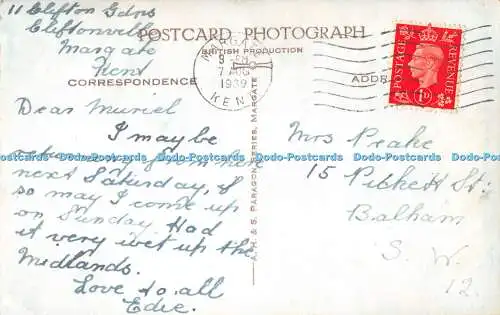 11 Clifton Gdns
Cliftonville
Margate
Kent
POSTCARD PHOTOGRAPH
BRITISH PRODUCTION
CORRESPONDENCE
ADDR
MARGATE
9 AM
7 AUG
1939
KENT
POSTAGE
REVENUE
1D
Dear Muriel
I may be
returning from here
next Saturday, if
so may I come up
on Sunday. Had
it very wet up the
Midlands.
Love to all
Edie.
A.H. & S. PARAGON SERIES, MARGATE
Mrs Peake
15 Pickett St:
Balham
S. W.
12.
Dodo-Postcards Dodo-Postcards Dodo-Postcards Dodo-Postcards Dodo-Postcards Dodo-Postcards